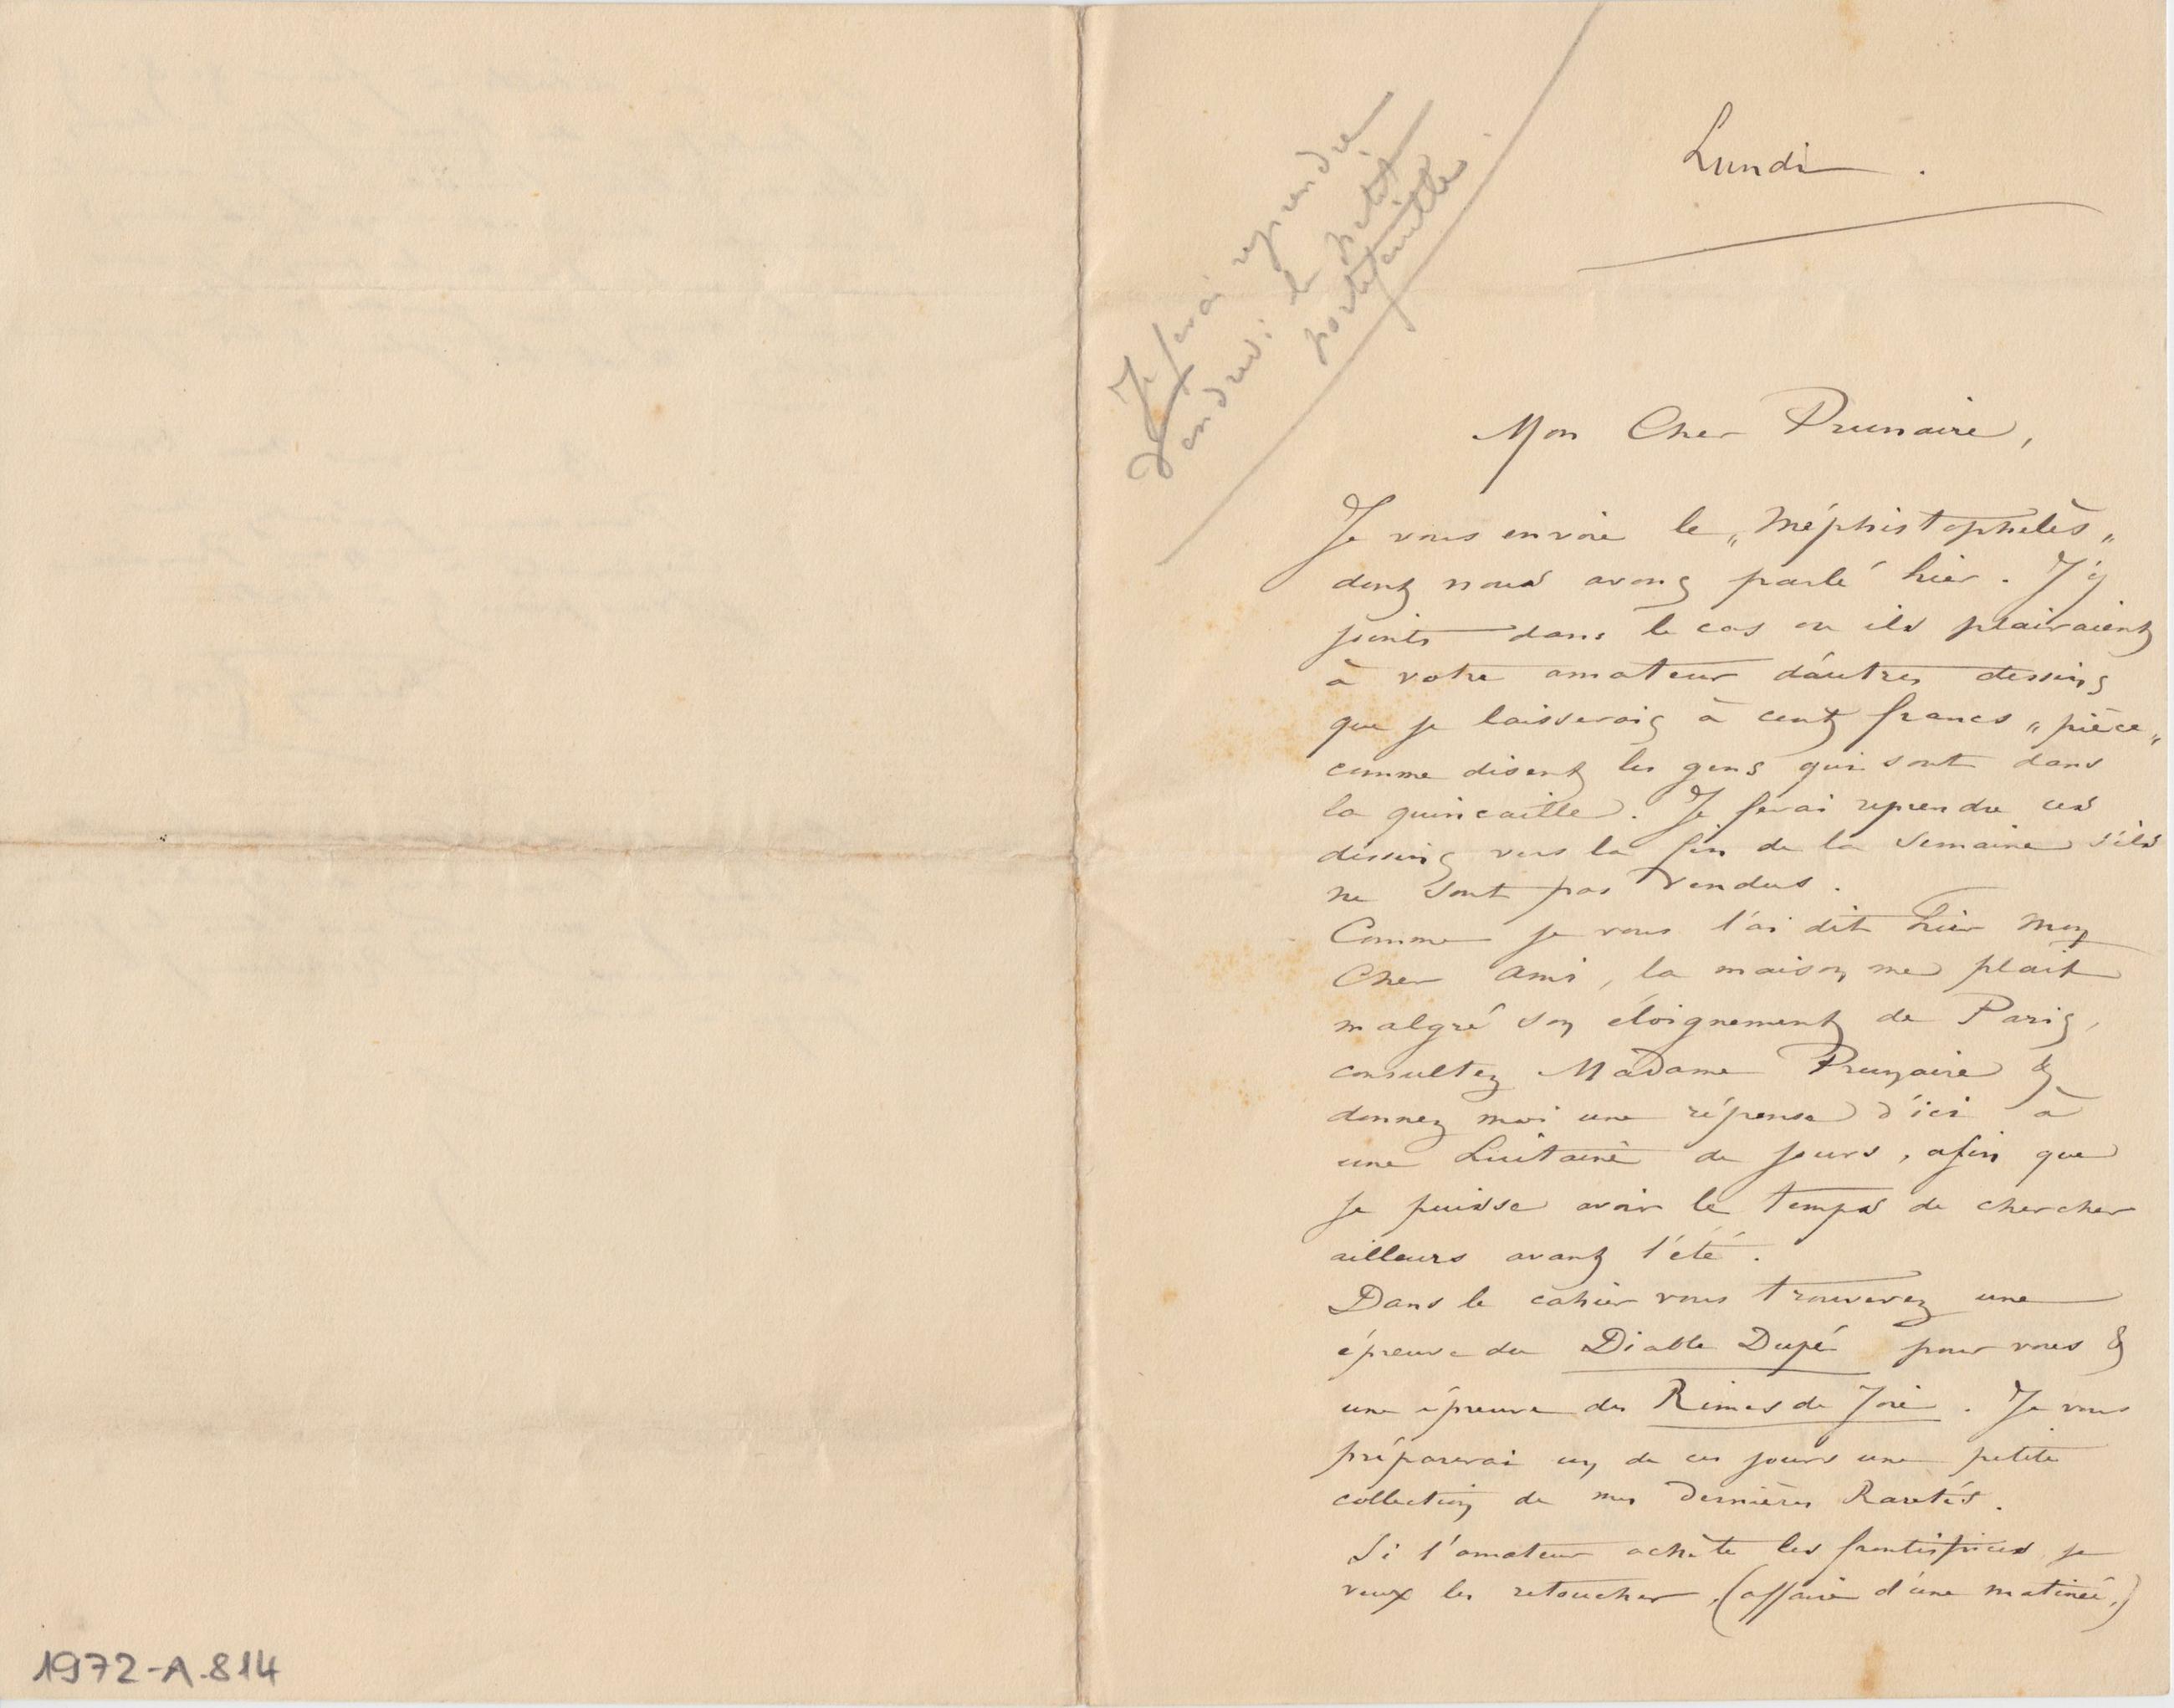 Je ferai reprendre
Vendredi le petit
portefeuille
Lundi .
Mon Cher Prunaire,
Je vous envoie le „Méphistophelès„
dont nous avons parlé hier. J'y
joints dans le cas ou ils plairaient
à votre amateur d'autres dessins
que je laisserais à cent francs „pièce„
comme disent les gens qui sont dans
la quincaille. Je ferai reprendre ces
dessins vers la fin de la semaine s'ils
ne sont pas vendus.
Comme je vous l'ai dit hier mon
Cher ami, la maison me plait
malgré son éloignement de Paris,
consultez Madame Prunaire &
donnez moi une réponse d'ici à
une huitaine de jours, afin que
je puisse avoir le temps de chercher
ailleurs avant l'été.
Dans le cahier vous trouverez une
épreuve du Diable Dupé pour vous &
une épreuve des Rimes de Joie. Je vous
préparerai un de ces jours une petite
collection de mes dernières Raretés.
Si l'amateur achète les frontispices je
veux les retoucher, (affaire d'une matinée,)
1972-A.814